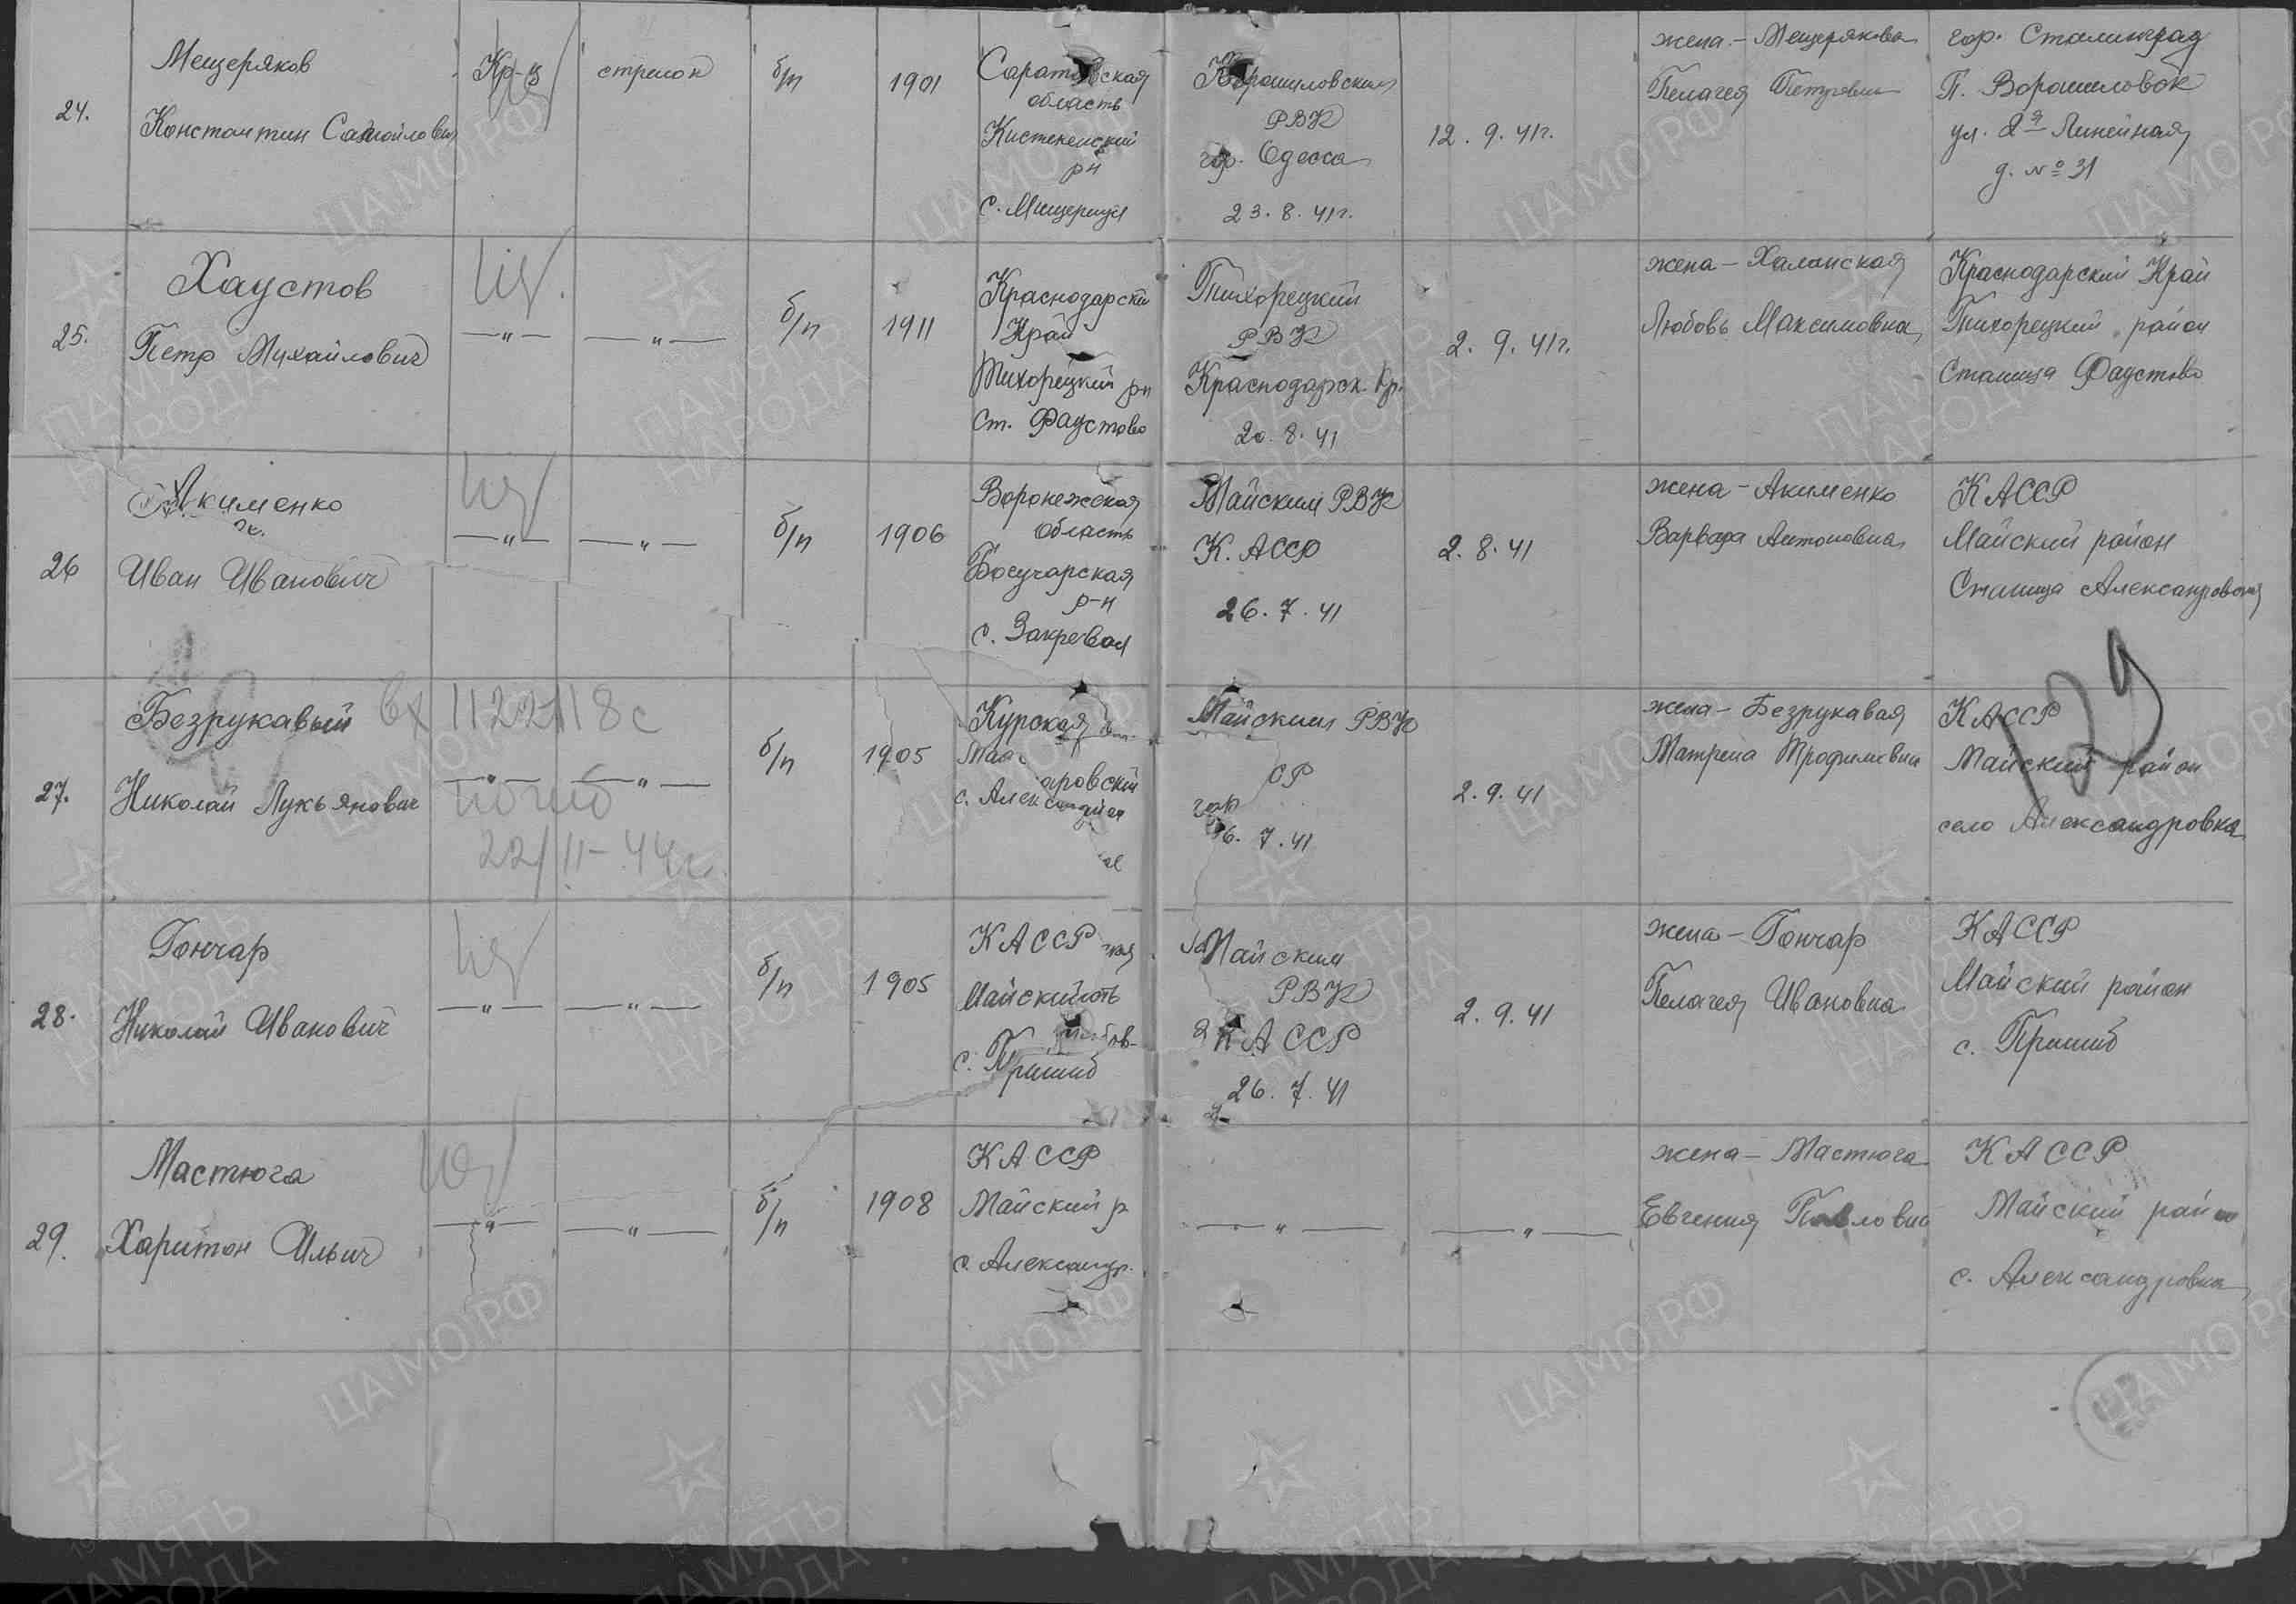 24.
Мещеряков
Константин Самойлович
Кр-ц
стрелок
б/п
1901
Саратовская
область
рн
с.
Ворошиловским
РВК
гор. Одесса
23.8.41г.
12.9.41г.
жена - Мещерякова
Пелагея Петровна
гор. Сталинград
П. Ворошиловск
ул. 2я Линейная
д. № 31
25.
Хаустов
Петр Михайлович
—"—
—"—
б/п
1911
Краснодарский
Край
Тихорецкий рн
ст. Фаустово
Тихорецким
РВК
Краснодарск. Кр.
20.8.41
2.9.41г.
жена - Халанская
Любовь Максимовна
Краснодарский Край
Тихорецкий район
Станица Фаустово
26
Акименко
Иван Иванович
—"—
—"—
б/п
1906
Воронежская
область
р-н
с.
Майским РВК
К.АССР
26.7.41
2.8.41
жена - Акименко
Варвара Антоновна
КАССР
Майский район
Станица Александровская
27.
Безрукавый
Николай Лукьянович
вх 1122118с
—"—
—"—
22/II-44г.
б/п
1905
Курская
аровский
с.
Майским РВК
СР
6.7.41
2.9.41
жена - Безрукавая
Матрена Трофимовна
КАССР
Майский район
село Александровка
129
28.
Гончар
Николай Иванович
—"—
—"—
б/п
1905
КАССР
Майский
с. Пришиб
Майским
РВК
КАССР
26.7.41
2.9.41
жена - Гончар
Пелагея Ивановна
КАССР
Майский район
с. Пришиб
29.
Мастюга
Харитон Ильич
—"—
—"—
б/п
1908
КАССР
Майский р
с. Александр.
—"—
—"—
жена - Мастюга
Евгения Павловна
КАССР
Майский район
с. Александровка
ЦАМО РФ
ПАМЯТЬ
НАРОДА